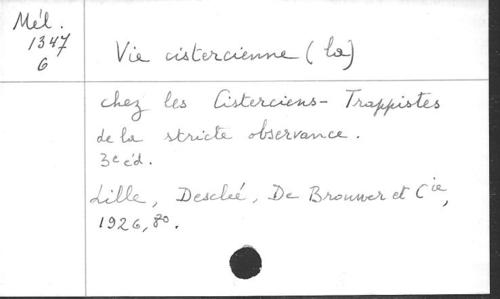 Mél.
1347
6
Vie cistercienne (la)
chez les Cisterciens-Trappistes
de la stricte observance.
3e éd.
Lille, Desclée, De Brouwer et Cie,
1926, 8o.